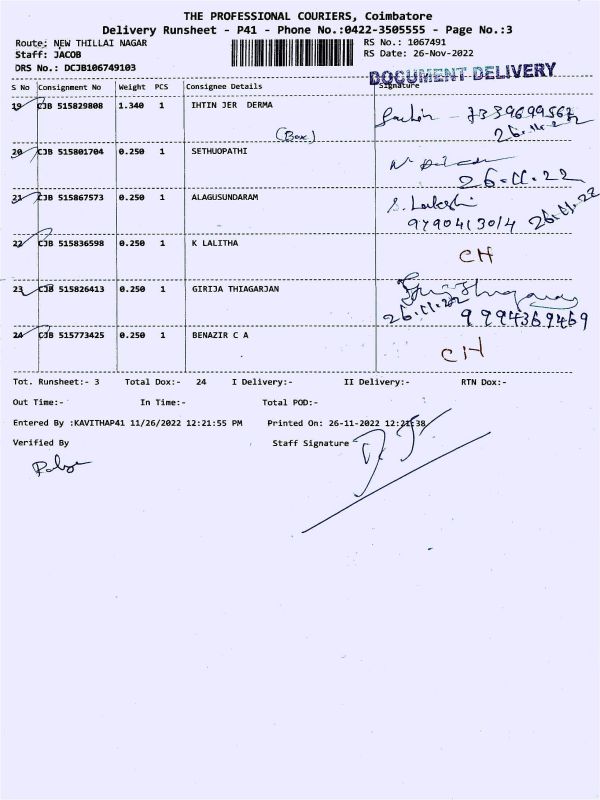 THE PROFESSIONAL COURIERS, Coimbatore
Delivery Runsheet - P41 - Phone No.:0422-3505555 - Page No.:3
Route: NEW THILLAI NAGAR RS No.: 1067491
Staff: JACOB RS Date: 26-Nov-2022
DRS No.: DCJB106749103
DOCUMENT DELIVERY
S No Consignment No Weight PCS Consignee Details Signature
19 CJB 515829808 1.340 1 IHTIN JER DERMA
(Box) 26.11.22
20 CJB 515801704 0.250 1 SETHUOPATHI
26.11.22
21 CJB 515867573 0.250 1 ALAGUSUNDARAM
9790413014 26.11.22
22 CJB 515836598 0.250 1 K LALITHA CH
23 CJB 515826413 0.250 1 GIRIJA THIAGARJAN
26.11.22 9994369469
24 CJB 515773425 0.250 1 BENAZIR C A CH
Tot. Runsheet:- 3 Total Dox:- 24 I Delivery:- II Delivery:- RTN Dox:-
Out Time:- In Time:- Total POD:-
Entered By :KAVITHAP41 11/26/2022 12:21:55 PM Printed On: 26-11-2022 12:21:38
Verified By Staff Signature